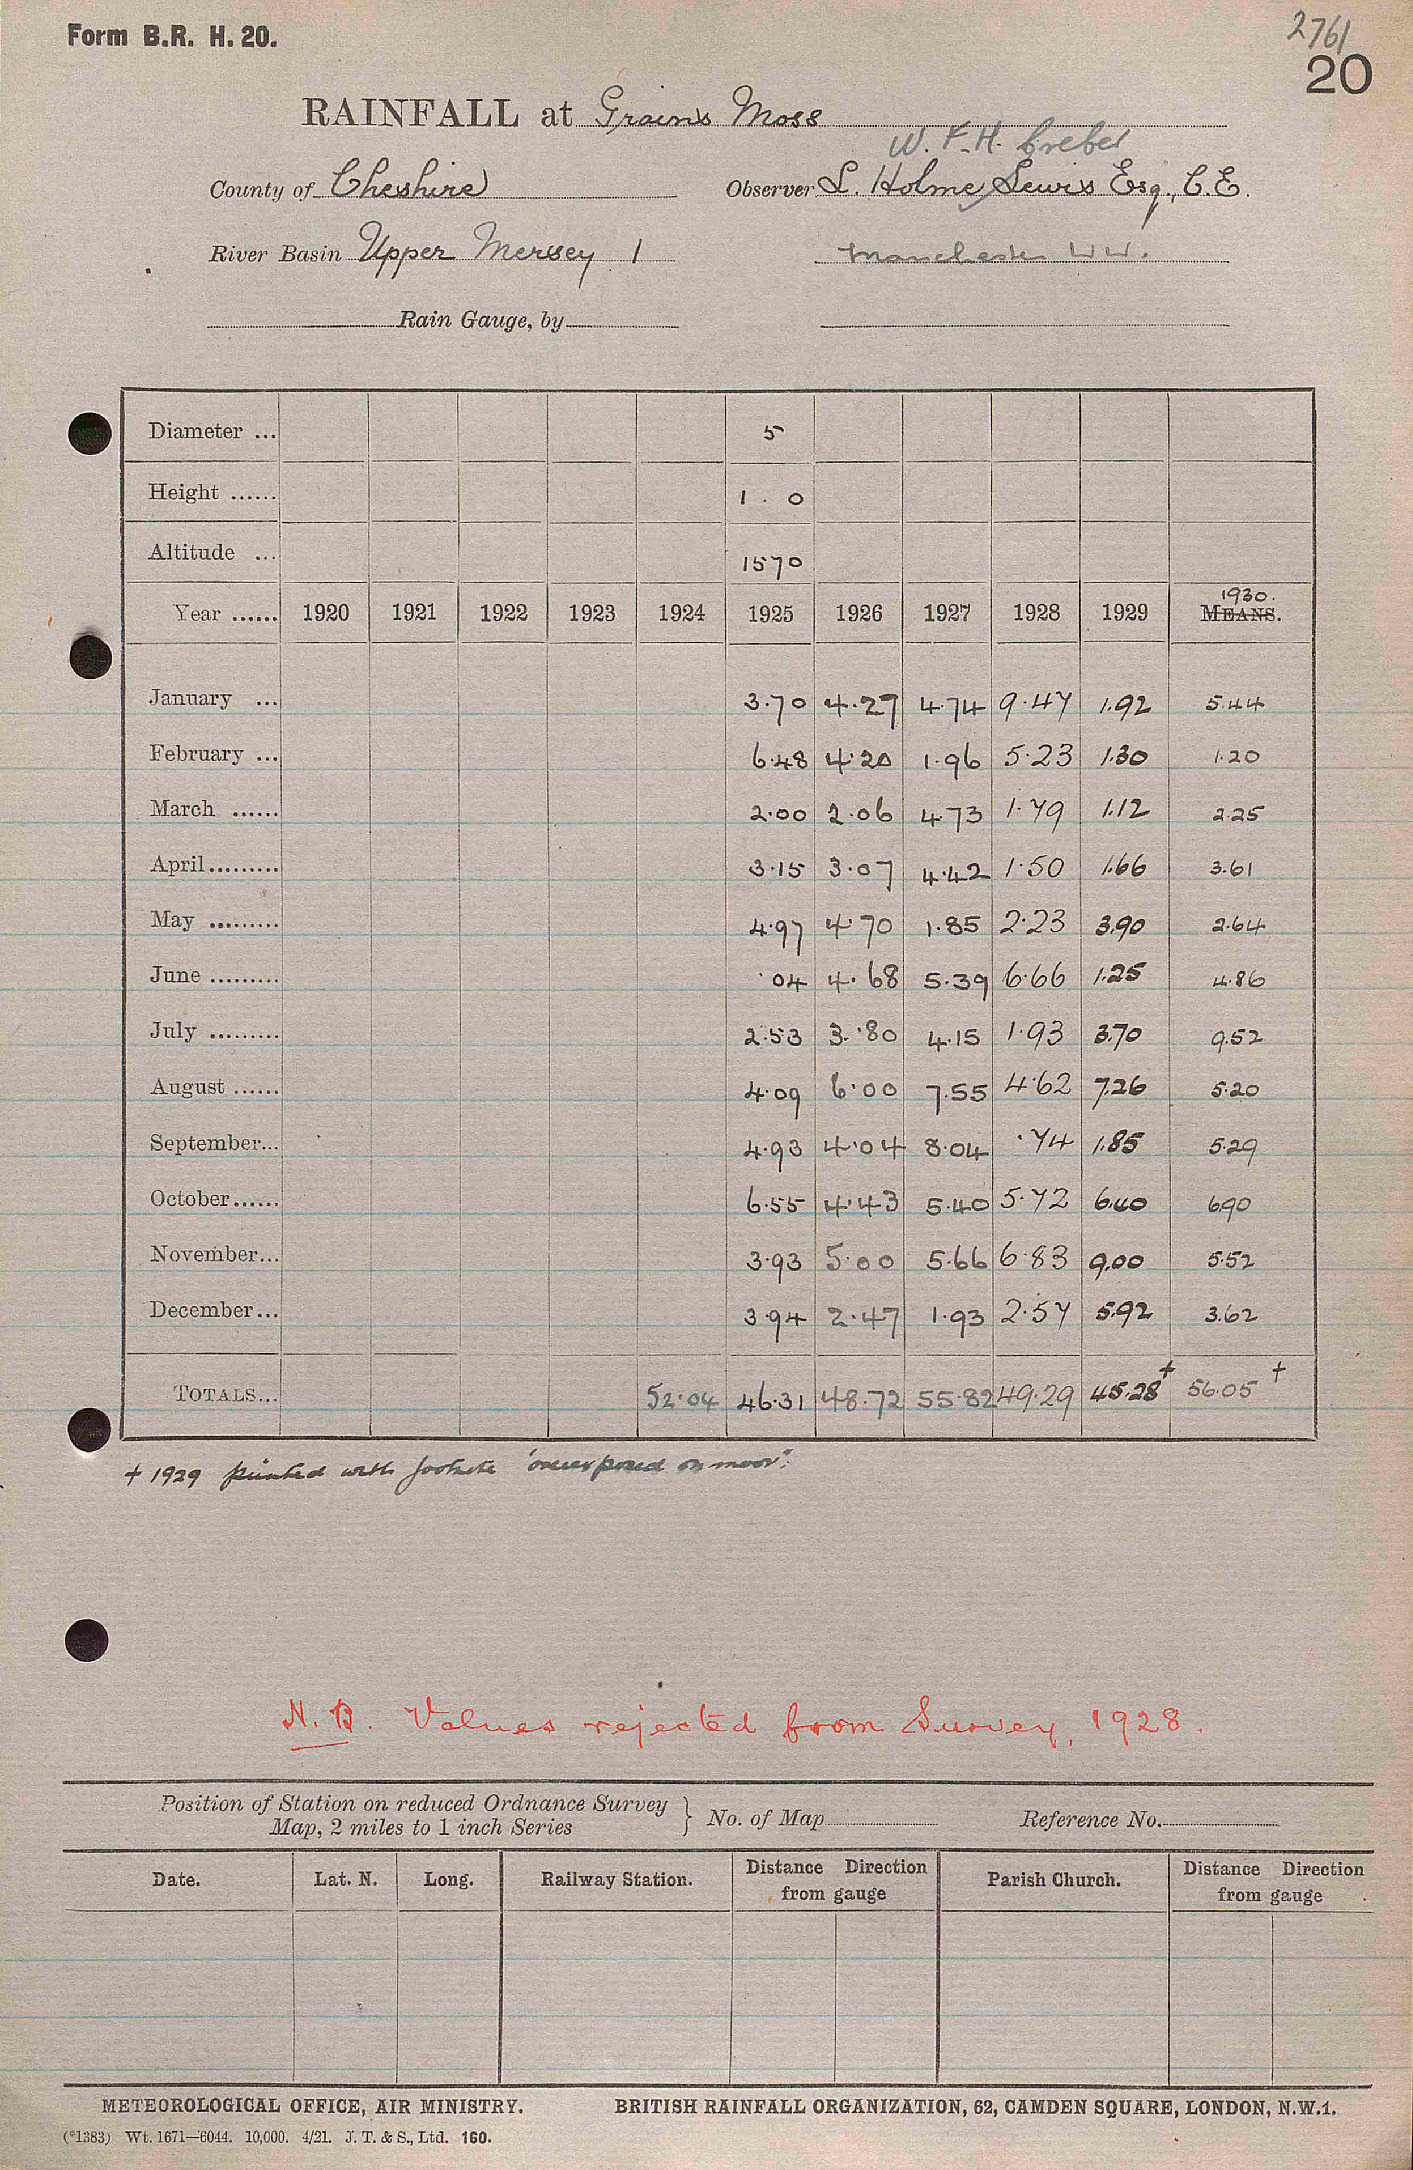 Form B.R. H. 20.
2761
20
RAINFALL at Grains Moss
W. F. H. Creber
County of Cheshire Observer L. Holme Lewis Esq., C.E.
River Basin Upper Mersey 1 Manchester W W.
Rain Gauge, by
Diameter ... 5
Height ...... 1 . 0
Altitude ... 1570
1930.
Year ...... 1920 1921 1922 1923 1924 1925 1926 1927 1928 1929 MEANS.
January ... 3.70 4.27 4.74 9.47 1.92 5.44
February ... 6.48 4.20 1.96 5.23 1.30 1.20
March ...... 2.00 2.06 4.73 1.79 1.12 2.25
April ......... 3.15 3.07 4.42 1.50 1.66 3.61
May ......... 4.97 4.70 1.85 2.23 3.90 2.64
June ......... .04 4.68 5.39 6.66 1.25 4.86
July ......... 2.53 3.80 4.15 1.93 3.70 9.52
August ...... 4.09 6.00 7.55 4.62 7.26 5.20
September... 4.93 4.04 8.04 .74 1.85 5.29
October...... 6.55 4.43 5.40 5.72 6.40 6.90
November... 3.93 5.00 5.66 6.83 9.00 5.52
December... 3.94 2.47 1.93 2.57 5.92 3.62
TOTALS... 52.04 46.31 48.72 55.82 49.29 45.28† 56.05†
† 1929 printed with footnote "overexposed on moor".
N.B. Values rejected from Survey, 1928.
Position of Station on reduced Ordnance Survey
Map, 2 miles to 1 inch Series } No. of Map Reference No.
Date. Lat. N. Long. Railway Station. Distance Direction from gauge Parish Church. Distance Direction from gauge
METEOROLOGICAL OFFICE, AIR MINISTRY. BRITISH RAINFALL ORGANIZATION, 62, CAMDEN SQUARE, LONDON, N.W.1.
(*1383) Wt. 1671—6044. 10,000. 4/21. J. T. & S., Ltd. 160.